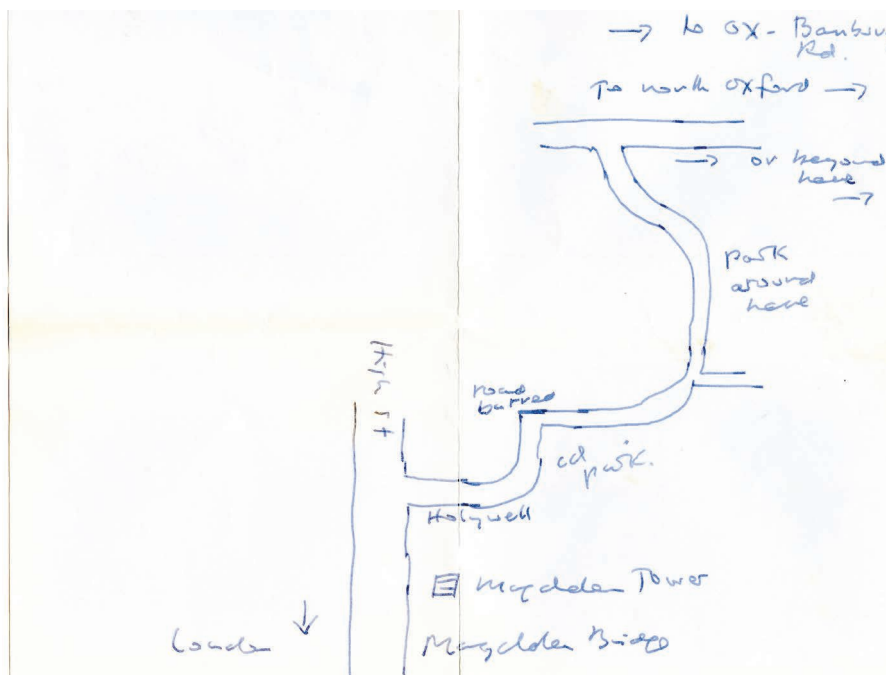 → to OX - Banbur
Rd.
To north Oxford →
→ or beyond
here
→
park
around
here
High St
road
barred
cd
park.
Holywell
Magdalen Tower
London ↓
Magdalen Bridge